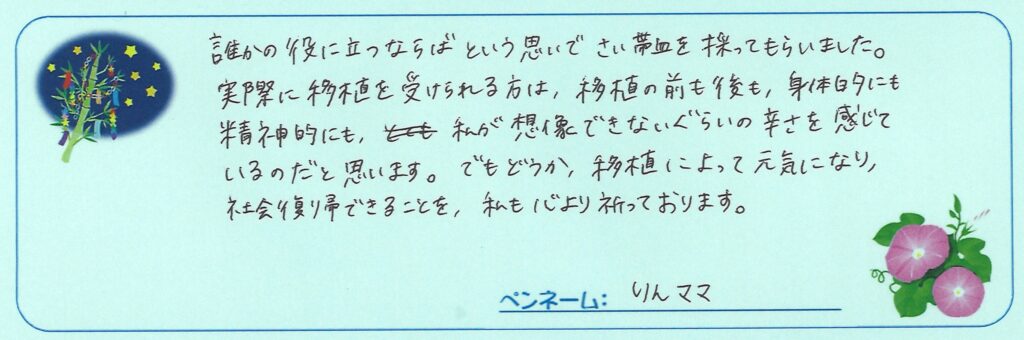 誰かの役に立つならばという思いでさい帯血を採ってもらいました。
実際に移植を受けられる方は，移植の前も後も，身体的にも
精神的にも，私が想像できないぐらいの辛さを感じて
いるのだと思います。でもどうか，移植によって元気になり，
社会復帰できることを，私も心より祈っております。
ペンネーム： りんママ